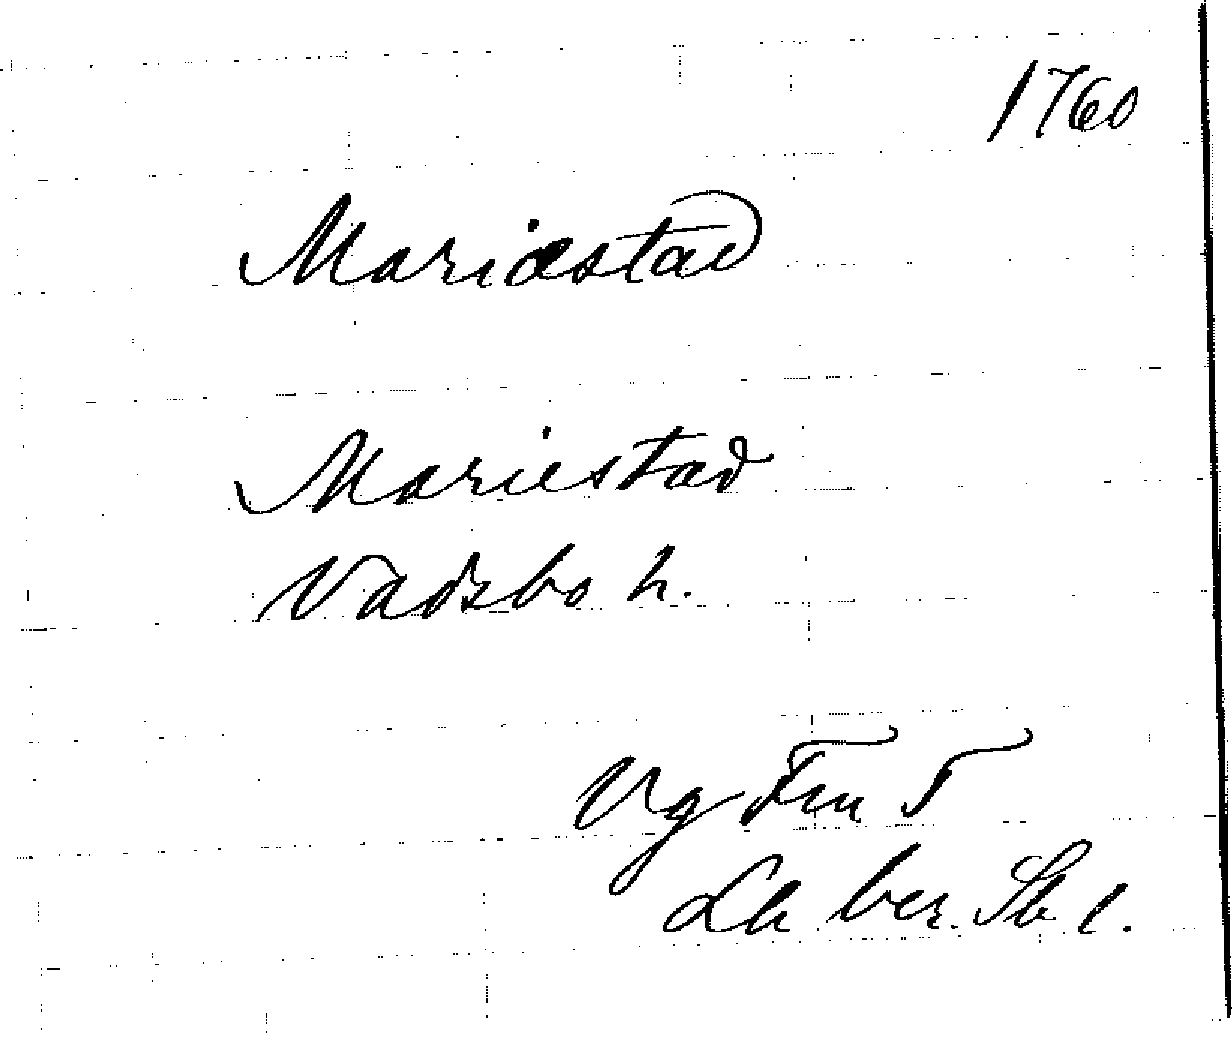 1760
Mariæstad
Mariestad
Vadsbo h.
Vg Fru T
La ber. Sb 1.